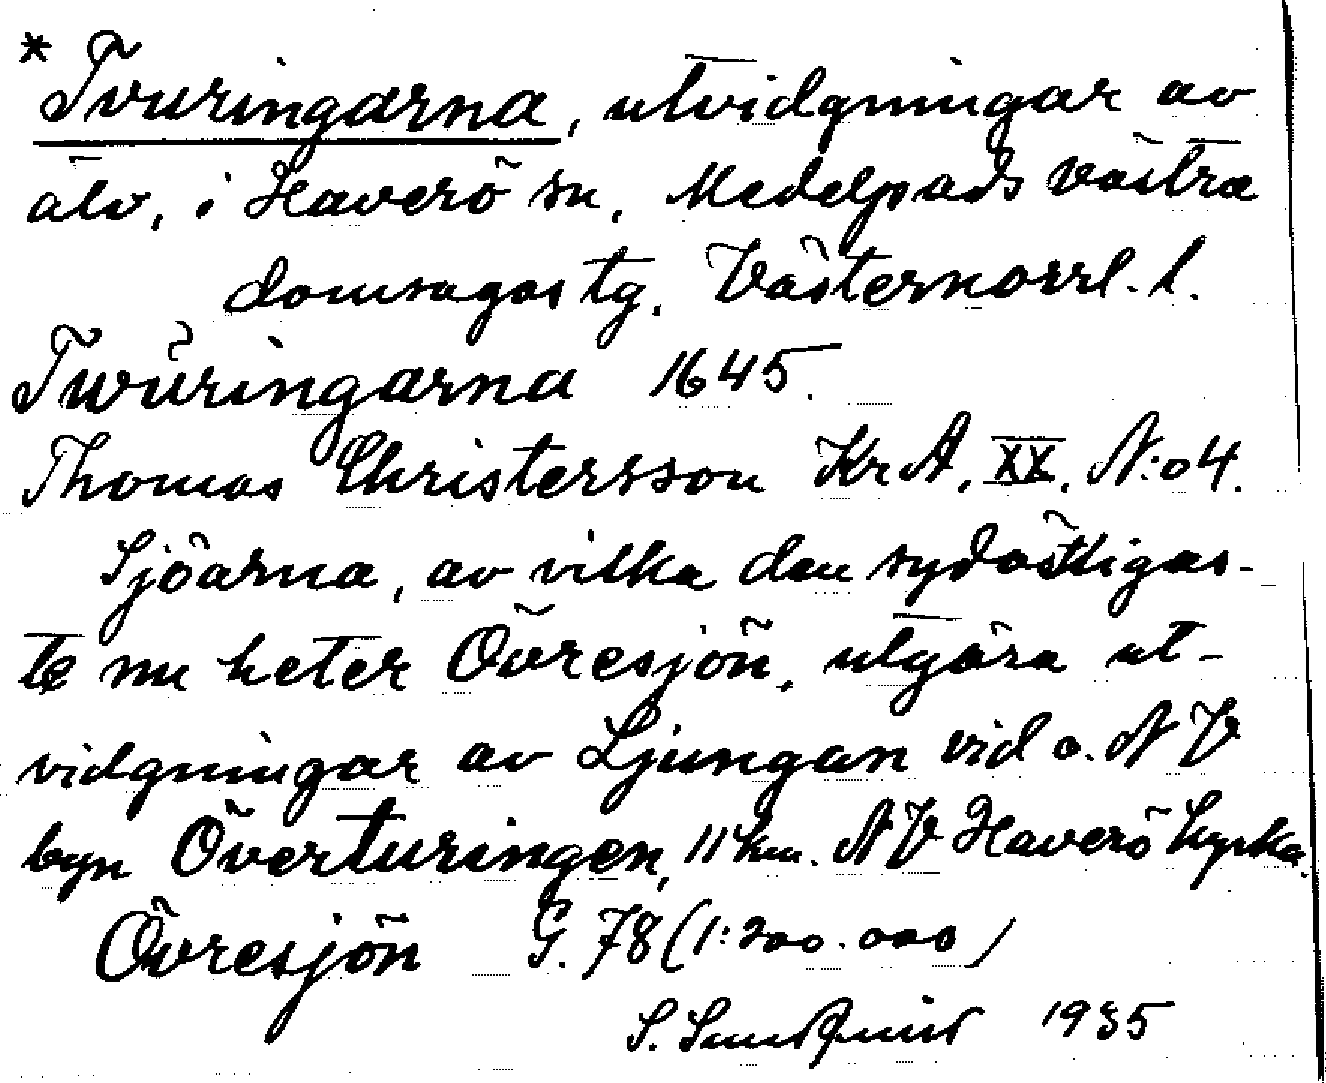 * Tvuringarna, utvidgningar av
älv, i Haverö sn, Medelpads västra
domsagas tg. Västernorrl. l.
Twŭringarna 1645.
Thomas Christersson KrA. XX. N:o 4.
Sjöarna, av vilka den sydöstligas-
te nu heter Övresjön, utgöra ut-
vidgningar av Ljungan vid o. NV
byn Överturingen, 11 km. NV Haverö kyrka.
Övresjön G. 78 (1:200.000)
S. Sundquist 1935